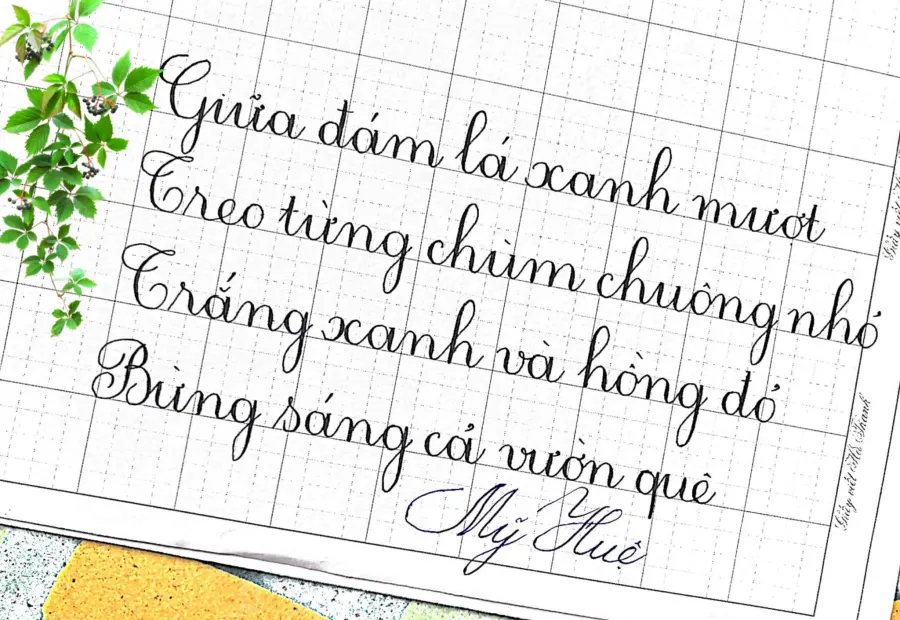 Giữa đám lá xanh mượt
Treo từng chùm chuông nhỏ
Trắng xanh và hồng đỏ
Bừng sáng cả vườn quê
Mỹ Huê
Giấy viết Hà Thanh
Giấy viết